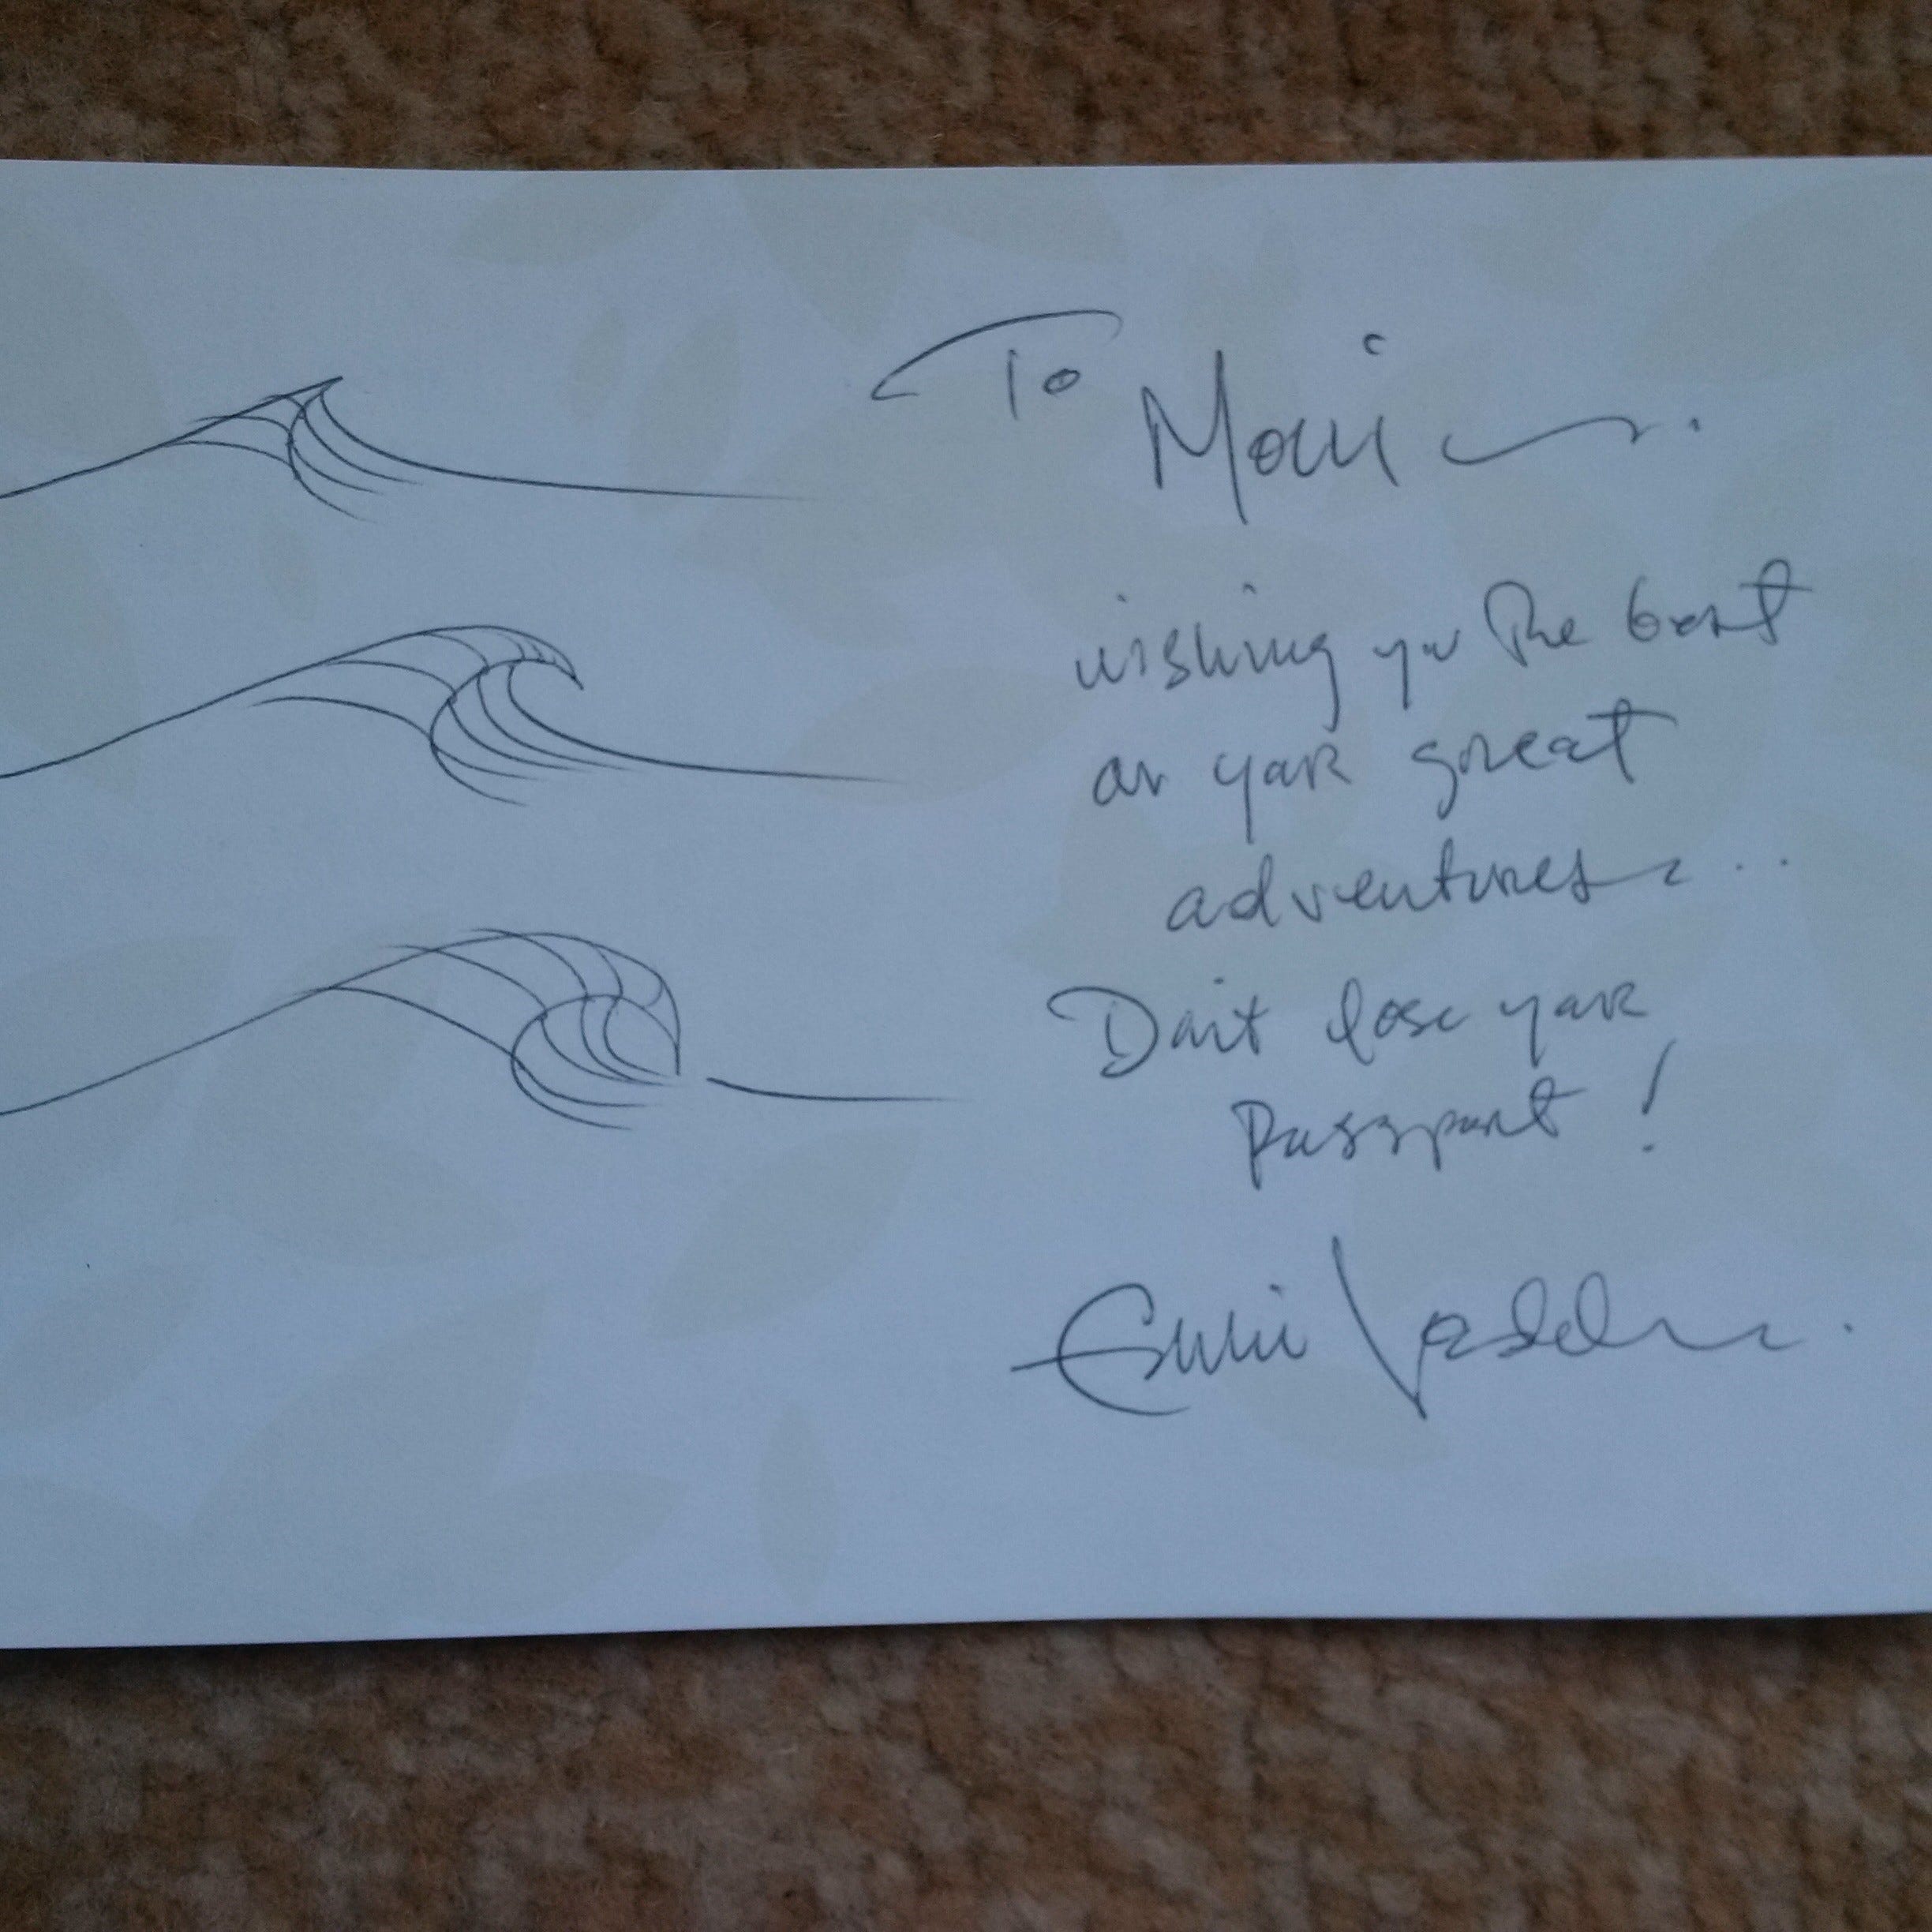 To
wishing you The best
on your great
adventures...
Don't lose your
Passport!
Eddie Vedder.